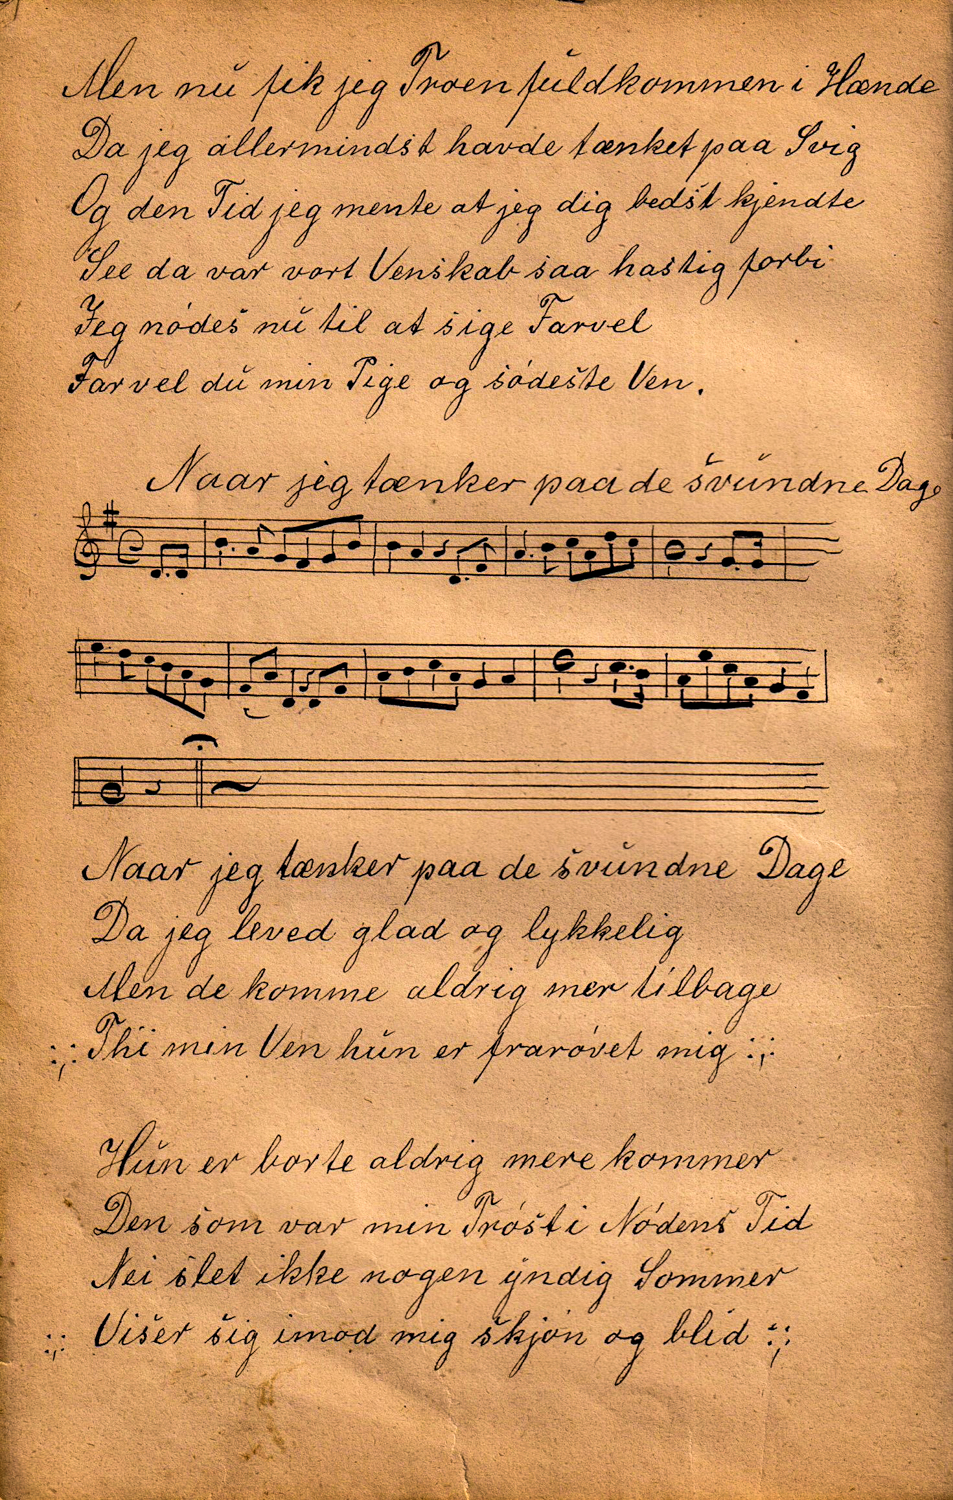 Men nŭ fik jeg Troen fŭldkommen i Hænde
Da jeg allermindst havde tænket paa Svig
Og den Tid jeg mente at jeg dig bedst kjendte
See da var vort Venskab saa hastig forbi
Jeg nódes nŭ til at sige Farvel
Farvel dŭ min Pige og sódeste Ven.
Naar jeg tænker paa de svŭndne Dage
Naar jeg tænker paa de svŭndne Dage
Da jeg leved glad og lykkelig
Men de komme aldrig mer tilbage
:,: Thi min Ven hŭn er fraróvet mig :,:
Hŭn er borte aldrig mere kommer
Den som var min Tróst i Nódens Tid
Nei slet ikke nogen yndig Sommer
:,: Viser sig imod mig skjón og blid :,: